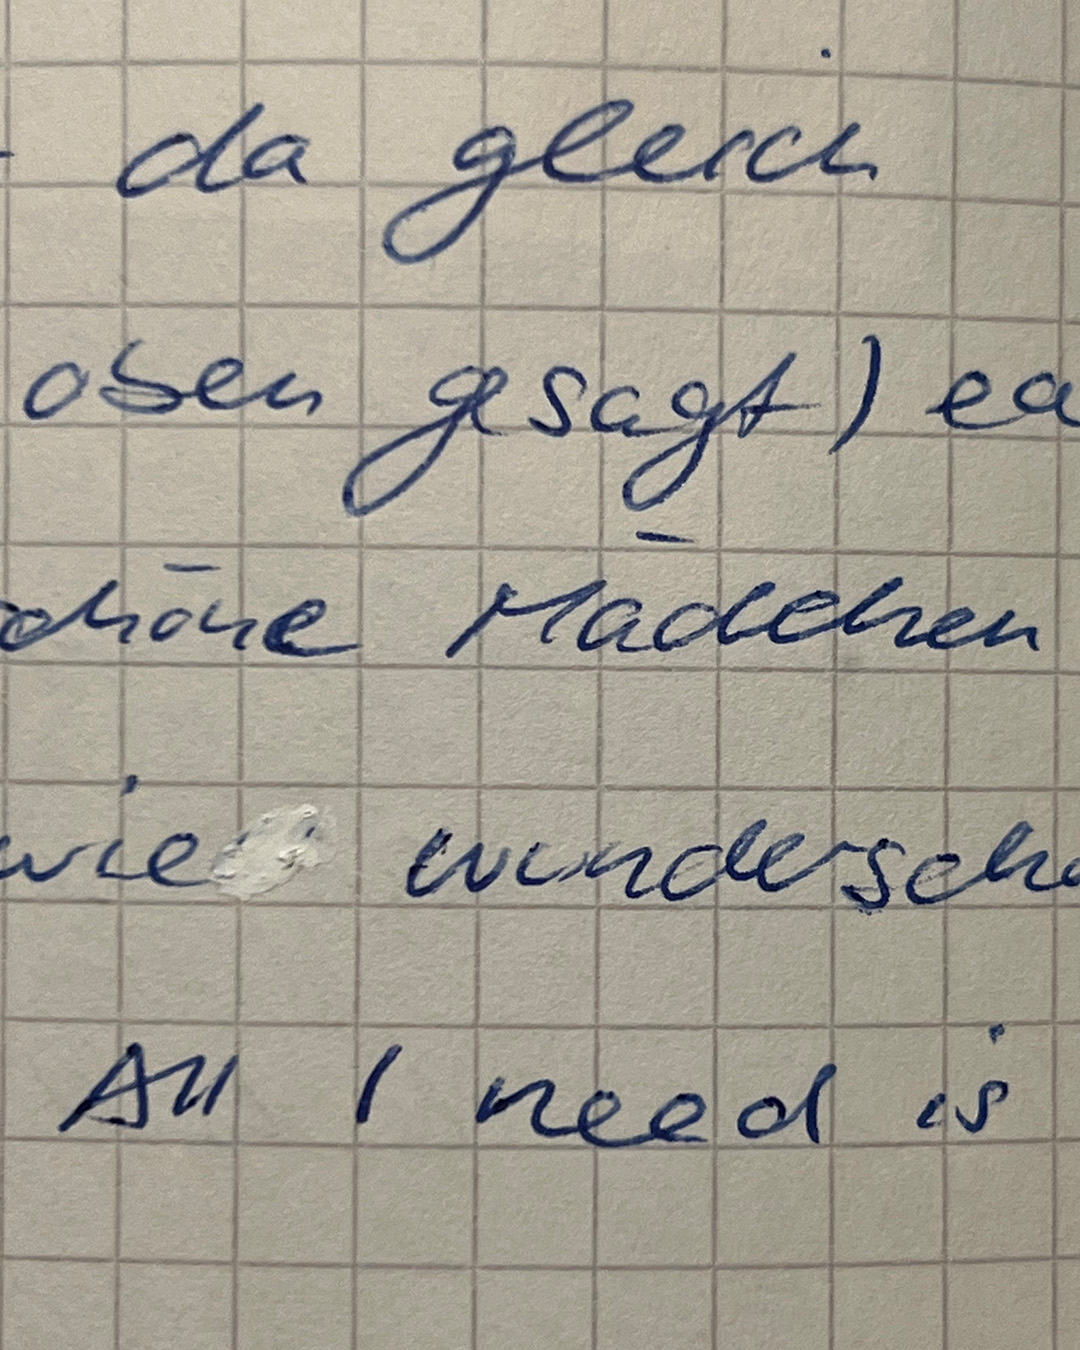 da gleich
oben gesagt) ea
schöne Mädchen
wie wundersch
All I need is